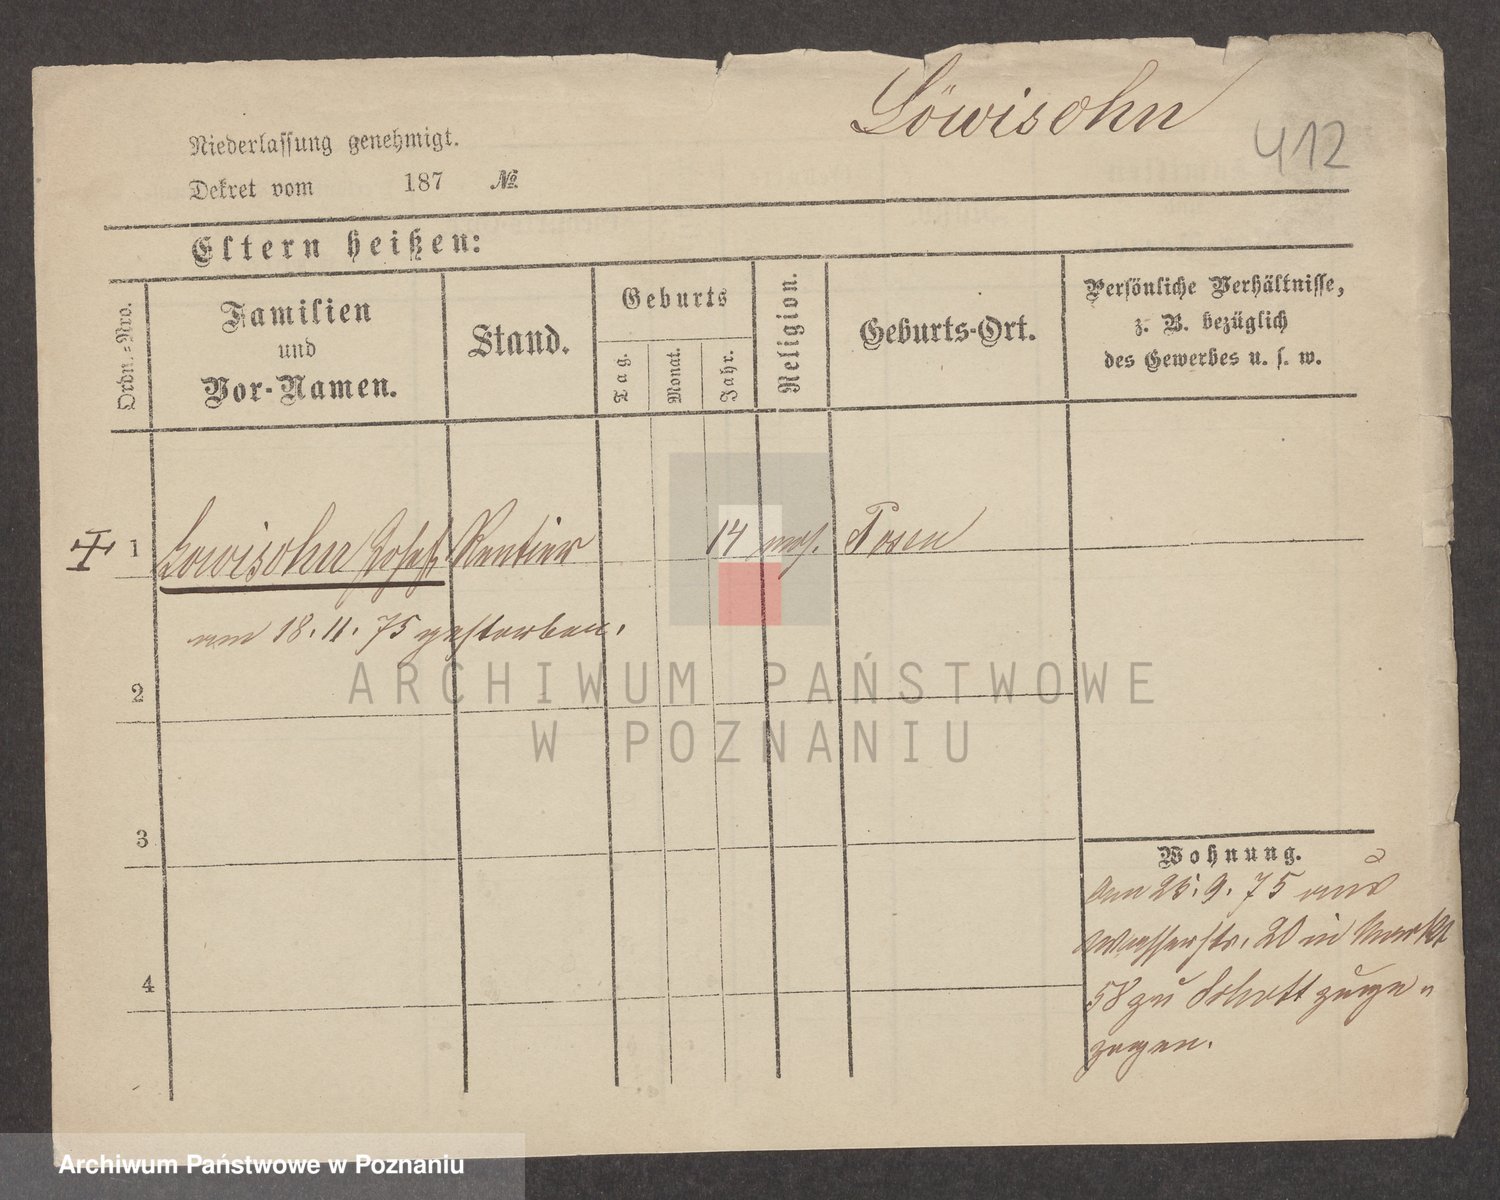 Löwisohn
412
Niederlassung genehmigt.
Dekret vom 187 №
Eltern heißen:
Ordn.=Nro.
Familien
und
Vor-Namen.
Stand.
Geburts
Tag.
Monat.
Jahr.
Religion.
Geburts-Ort.
Persönliche Verhältnisse,
z. B. bezüglich
des Gewerbes u. s. w.
1 Lowisohn Josef Rentier 14 mos. Posen
am 18. 11. 75 gestorben.
2
3
4
Wohnung.
Am 25. 9. 75 aus
Wasserstr. 20 in Markt
58 zu Schott zuge-
zogen.
ARCHIWUM PAŃSTWOWE
W POZNANIU
Archiwum Państwowe w Poznaniu